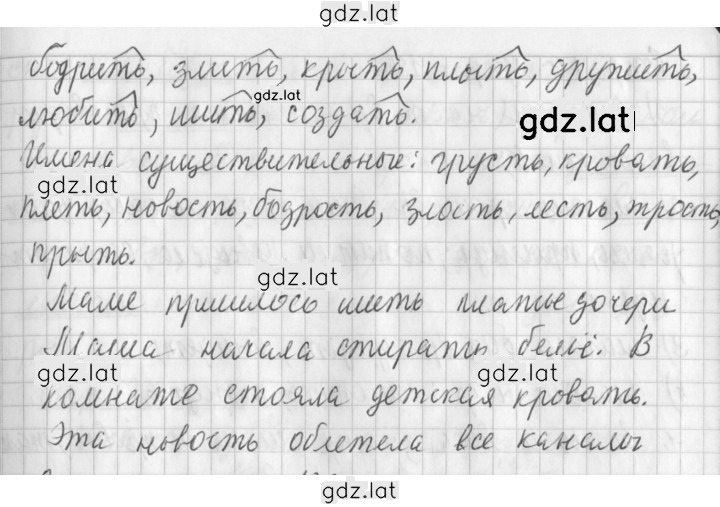 gdz.lat
бодрить, злить, крыть, плыть, дружить,
gdz.lat
любить, шить, создать.
gdz.lat
Имена существительные: грусть, кровать,
gdz.lat
плеть, новость, бодрость, злость, лесть, трость,
прыть.
gdz.lat
Маме пришлось шить платье дочери
Мама начала стирать бельё. В
gdz.lat gdz.lat
комнате стояла детская кровать.
Эта новость облетела все каналы
gdz.lat